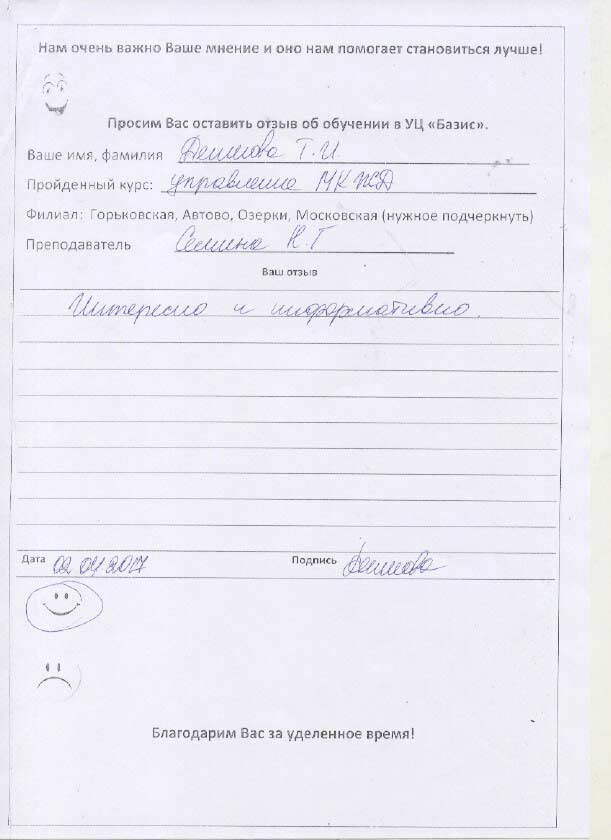 Нам очень важно Ваше мнение и оно нам помогает становиться лучше!
Просим Вас оставить отзыв об обучении в УЦ «Базис».
Ваше имя, фамилия Т.И.
Пройденный курс: управление МКЖД
Филиал: Горьковская, Автово, Озерки, Московская (нужное подчеркнуть)
Преподаватель Семина Н.Г
Ваш отзыв
Интересно и информативно.
Дата 02 04 2017 Подпись
Благодарим Вас за уделенное время!